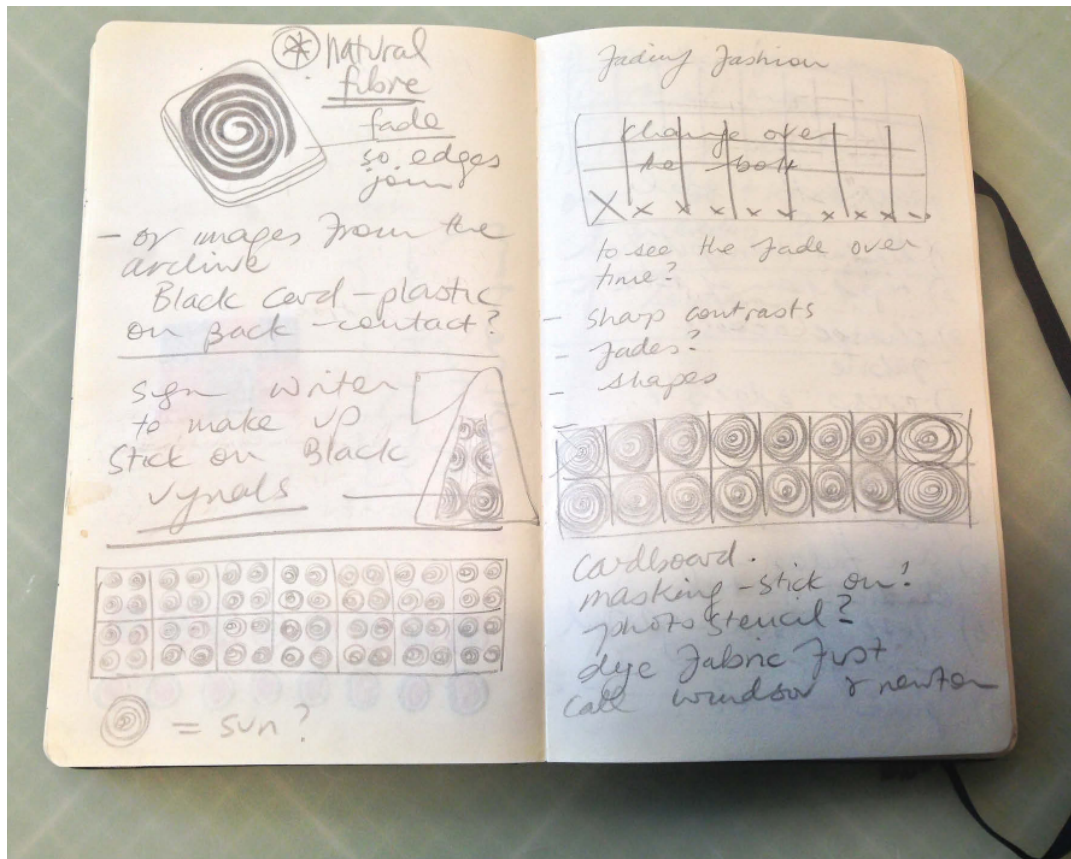 * Natural
fibre
fade
so edges
join
- or images from the
archive
Black Card - plastic
on back - contact?
Sign writer
to make up
Stick on Black
vynals
= sun?
Fading Fashion
change over
the bolt
to see the fade over
time?
- sharp contrasts
- fades?
- shapes
cardboard.
masking - stick on?
photo stencil?
dye fabric first
call windsor & newton